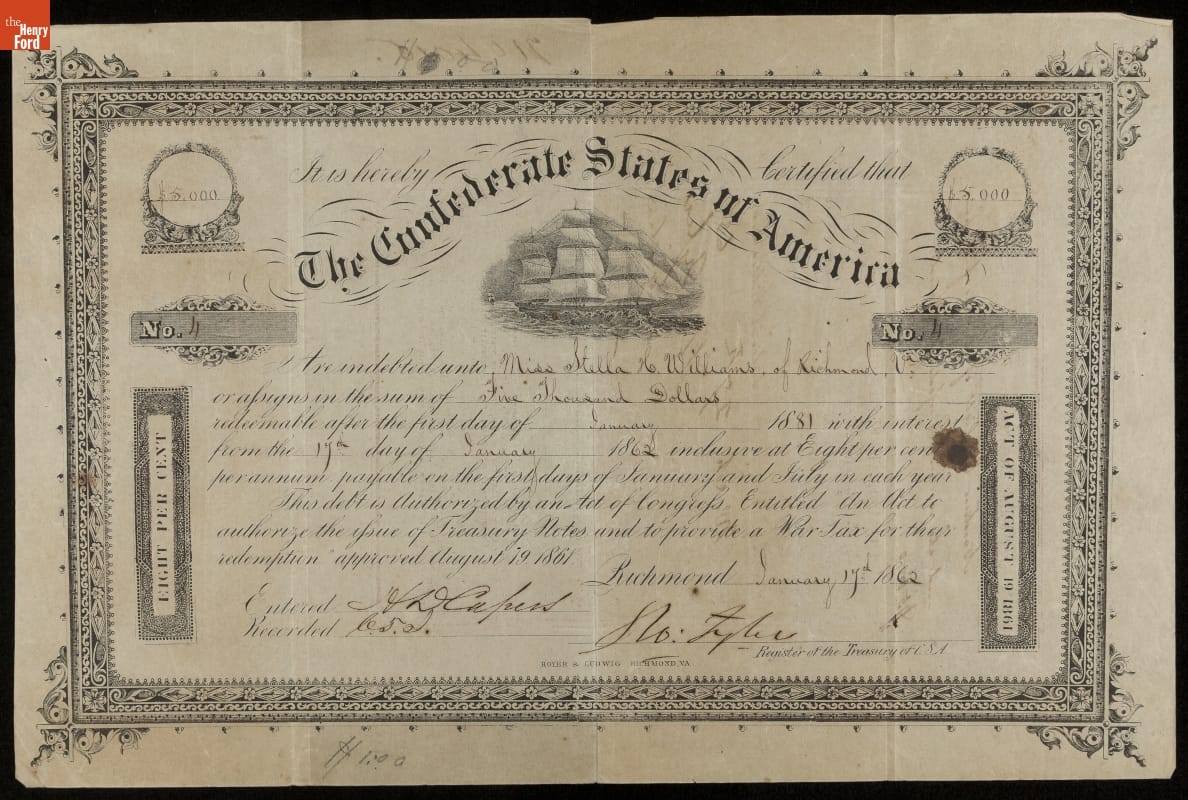 the
Henry
Ford
It is hereby Certified that
The Confederate States of America
$5.000
$5.000
No. 4
No. 4
Are indebted unto Miss Stella H. Williams, of Richmond, Va
or assigns in the sum of Five Thousand Dollars
redeemable after the first day of January 1881 with interest
from the 17th day of January 1862 inclusive at Eight per cent
per annum payable on the first days of January and July in each year
This debt is Authorized by an Act of Congress Entitled "An Act to
authorize the issue of Treasury Notes and to provide a War Tax for their
redemption" approved August 19. 1861.
Richmond January 17th 1862
EIGHT PER CENT
ACT OF AUGUST 19 1861
Entered A D Capers
Recorded C.T.J.
Ro: Tyler
Register of the Treasury of C.S.A.
HOYER & LUDWIG RICHMOND, VA.